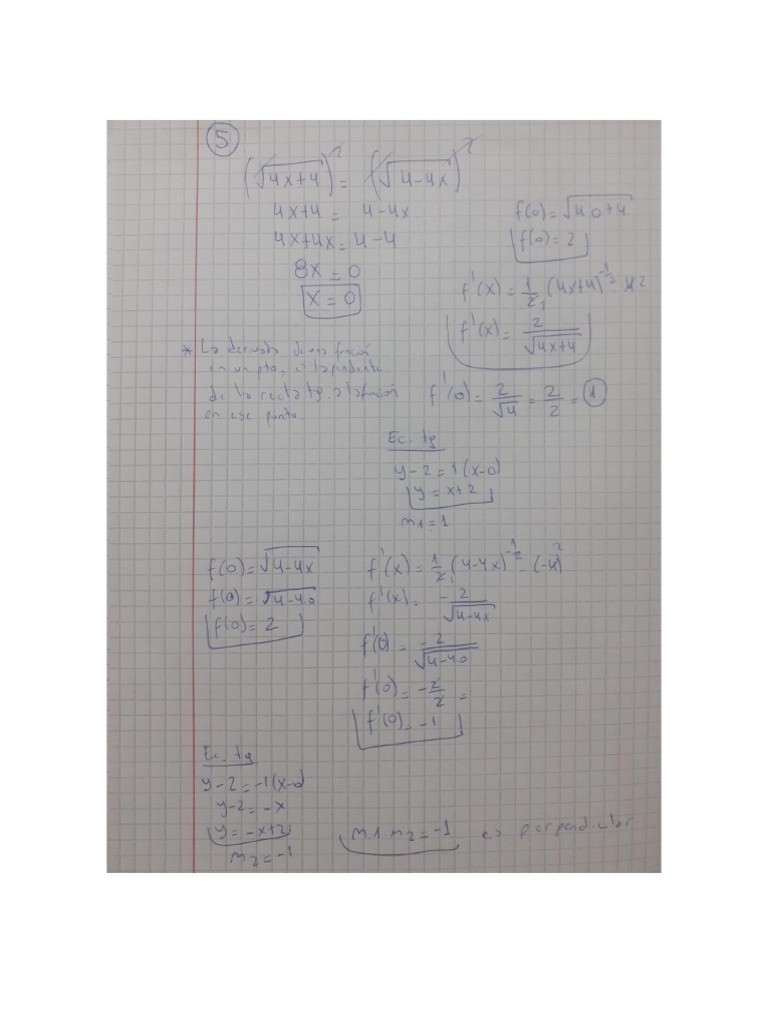 5
(√4x+4)² = (√4-4x)²
4x+4 = 4-4x
4x+4x = 4-4
8x = 0
x = 0
f(0) = √4·0+4
f(0) = 2
f'(x) = 1/2 (4x+4)^-1/2 · 4 2
f'(x) = 2/√4x+4
* La derivada de una función
en un pto, es la pendiente
de la recta tg. a la función
en ese punto.
f'(0) = 2/√4 = 2/2 = 1
Ec. tg
y-2 = 1(x-0)
y = x+2
m1 = 1
f(0) = √4-4x
f(0) = √4-4·0
f(0) = 2
f'(x) = 1/2 (4-4x)^-1/2 · (-4) 2
f'(x) = -2/√4-4x
f'(0) = -2/√4-4·0
f'(0) = -2/2 =
f'(0) = -1
Ec. tg
y-2 = -1(x-0)
y-2 = -x
y = -x+2
m2 = -1
m1·m2 = -1 es perpendicular